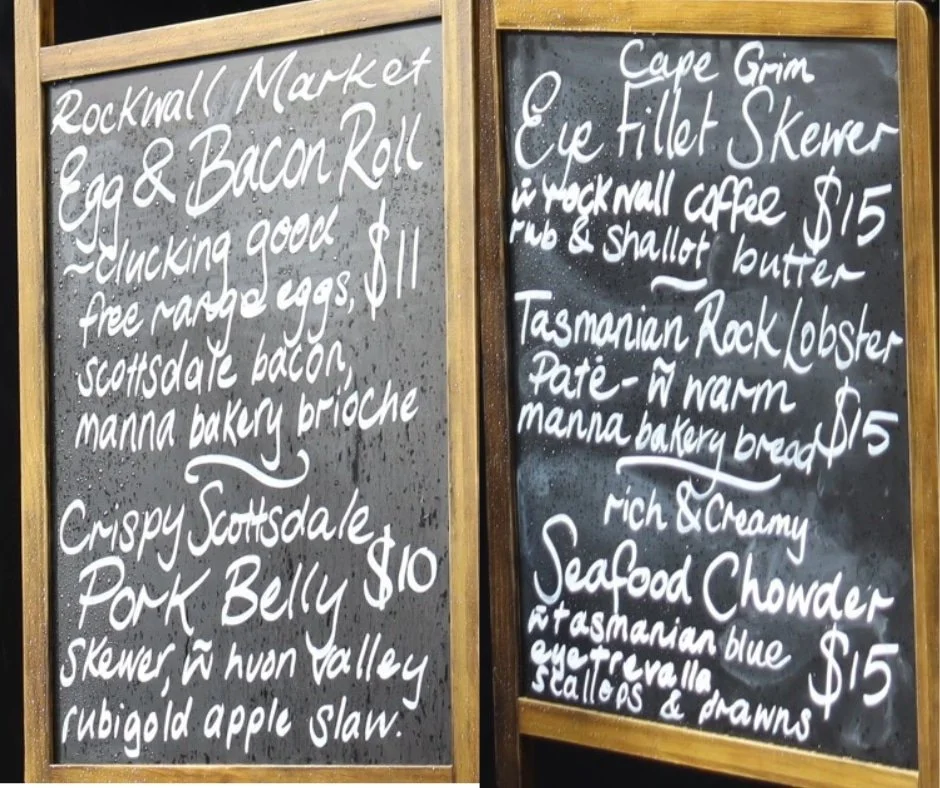 Rockwall Market
Egg & Bacon Roll
~clucking good
free range eggs, $11
scottsdale bacon,
manna bakery brioche
Crispy Scottsdale
Pork Belly $10
skewer, w̃ huon valley
rubigold apple slaw.
Cape Grim
Eye Fillet Skewer
w̃ rockwall coffee $15
rub & shallot butter
Tasmanian Rock Lobster
Paté - w̃ warm
manna bakery bread $15
rich & Creamy
Seafood Chowder
w̃ tasmanian blue
eye trevalla $15
scallops & prawns